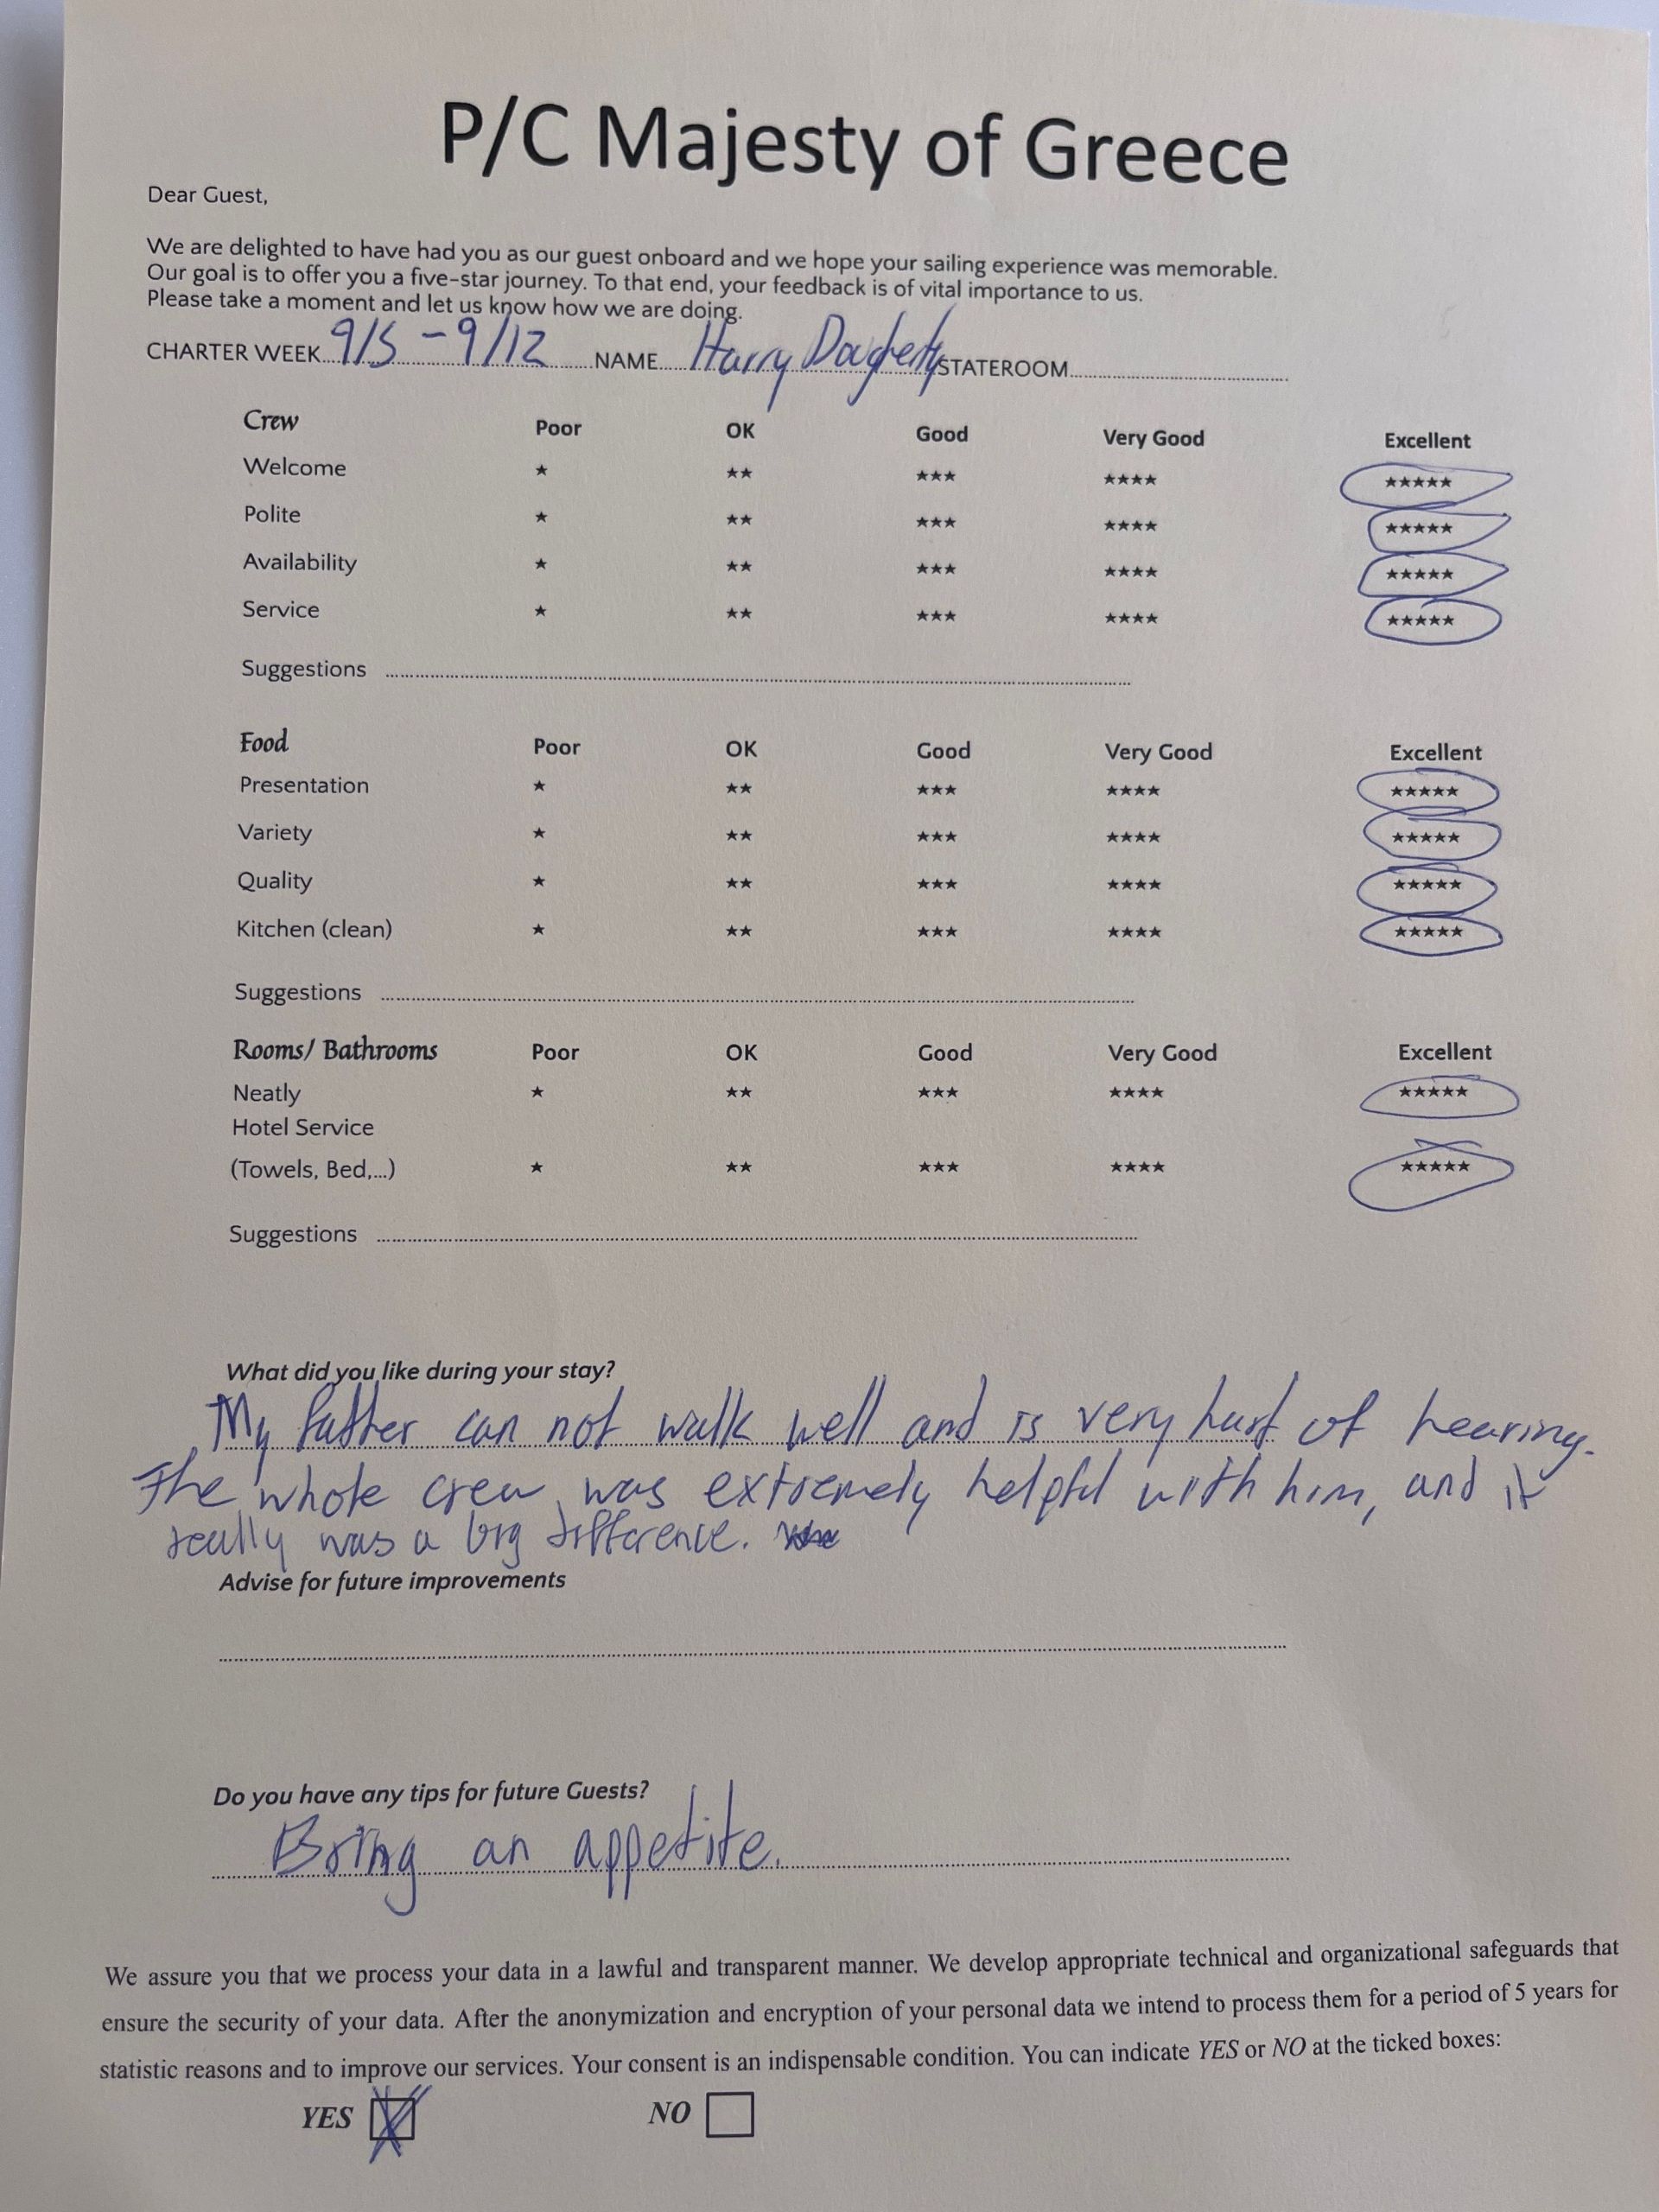 P/C Majesty of Greece
Dear Guest,
We are delighted to have had you as our guest onboard and we hope your sailing experience was memorable.
Our goal is to offer you a five-star journey. To that end, your feedback is of vital importance to us.
Please take a moment and let us know how we are doing.
CHARTER WEEK 9/5 - 9/12 NAME Harry Dougherty STATEROOM
Crew Poor OK Good Very Good Excellent
Welcome ★ ★★ ★★★ ★★★★ ★★★★★
Polite ★ ★★ ★★★ ★★★★ ★★★★★
Availability ★ ★★ ★★★ ★★★★ ★★★★★
Service ★ ★★ ★★★ ★★★★ ★★★★★
Suggestions
Food Poor OK Good Very Good Excellent
Presentation ★ ★★ ★★★ ★★★★ ★★★★★
Variety ★ ★★ ★★★ ★★★★ ★★★★★
Quality ★ ★★ ★★★ ★★★★ ★★★★★
Kitchen (clean) ★ ★★ ★★★ ★★★★ ★★★★★
Suggestions
Rooms/ Bathrooms Poor OK Good Very Good Excellent
Neatly ★ ★★ ★★★ ★★★★ ★★★★★
Hotel Service
(Towels, Bed,...) ★ ★★ ★★★ ★★★★ ★★★★★
Suggestions
What did you like during your stay?
My father can not walk well and is very hard of hearing.
The whole crew was extremely helpful with him, and it
really was a big difference.
Advise for future improvements
Do you have any tips for future Guests?
Bring an appetite.
We assure you that we process your data in a lawful and transparent manner. We develop appropriate technical and organizational safeguards that
ensure the security of your data. After the anonymization and encryption of your personal data we intend to process them for a period of 5 years for
statistic reasons and to improve our services. Your consent is an indispensable condition. You can indicate YES or NO at the ticked boxes:
YES NO